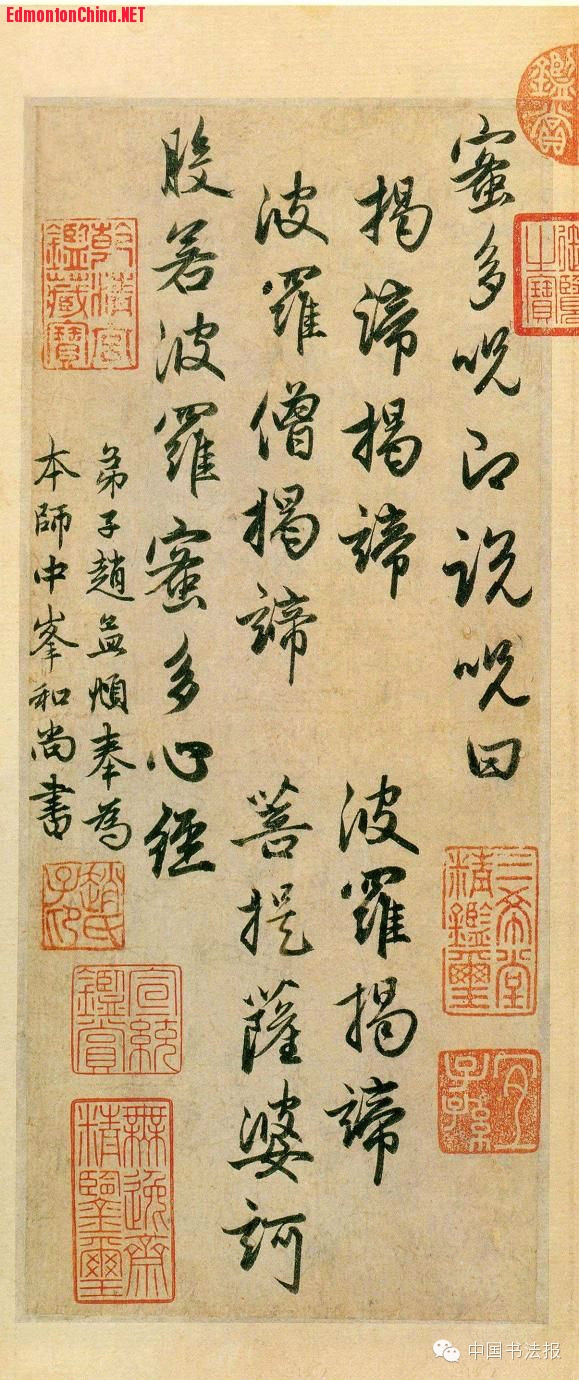 EdmontonChina.NET
蜜多呪即說呪曰
揭諦揭諦 波羅揭諦
波羅僧揭諦 菩提薩婆訶
般若波羅蜜多心經
弟子趙孟頫奉為
本師中峯和尚書
鑑賞
御覽之寶
三希堂精鑑璽
宜子孫
乾清宮鑑藏寶
趙氏子印
宣統鑑賞
無逸齋精鑒璽
中国书法报